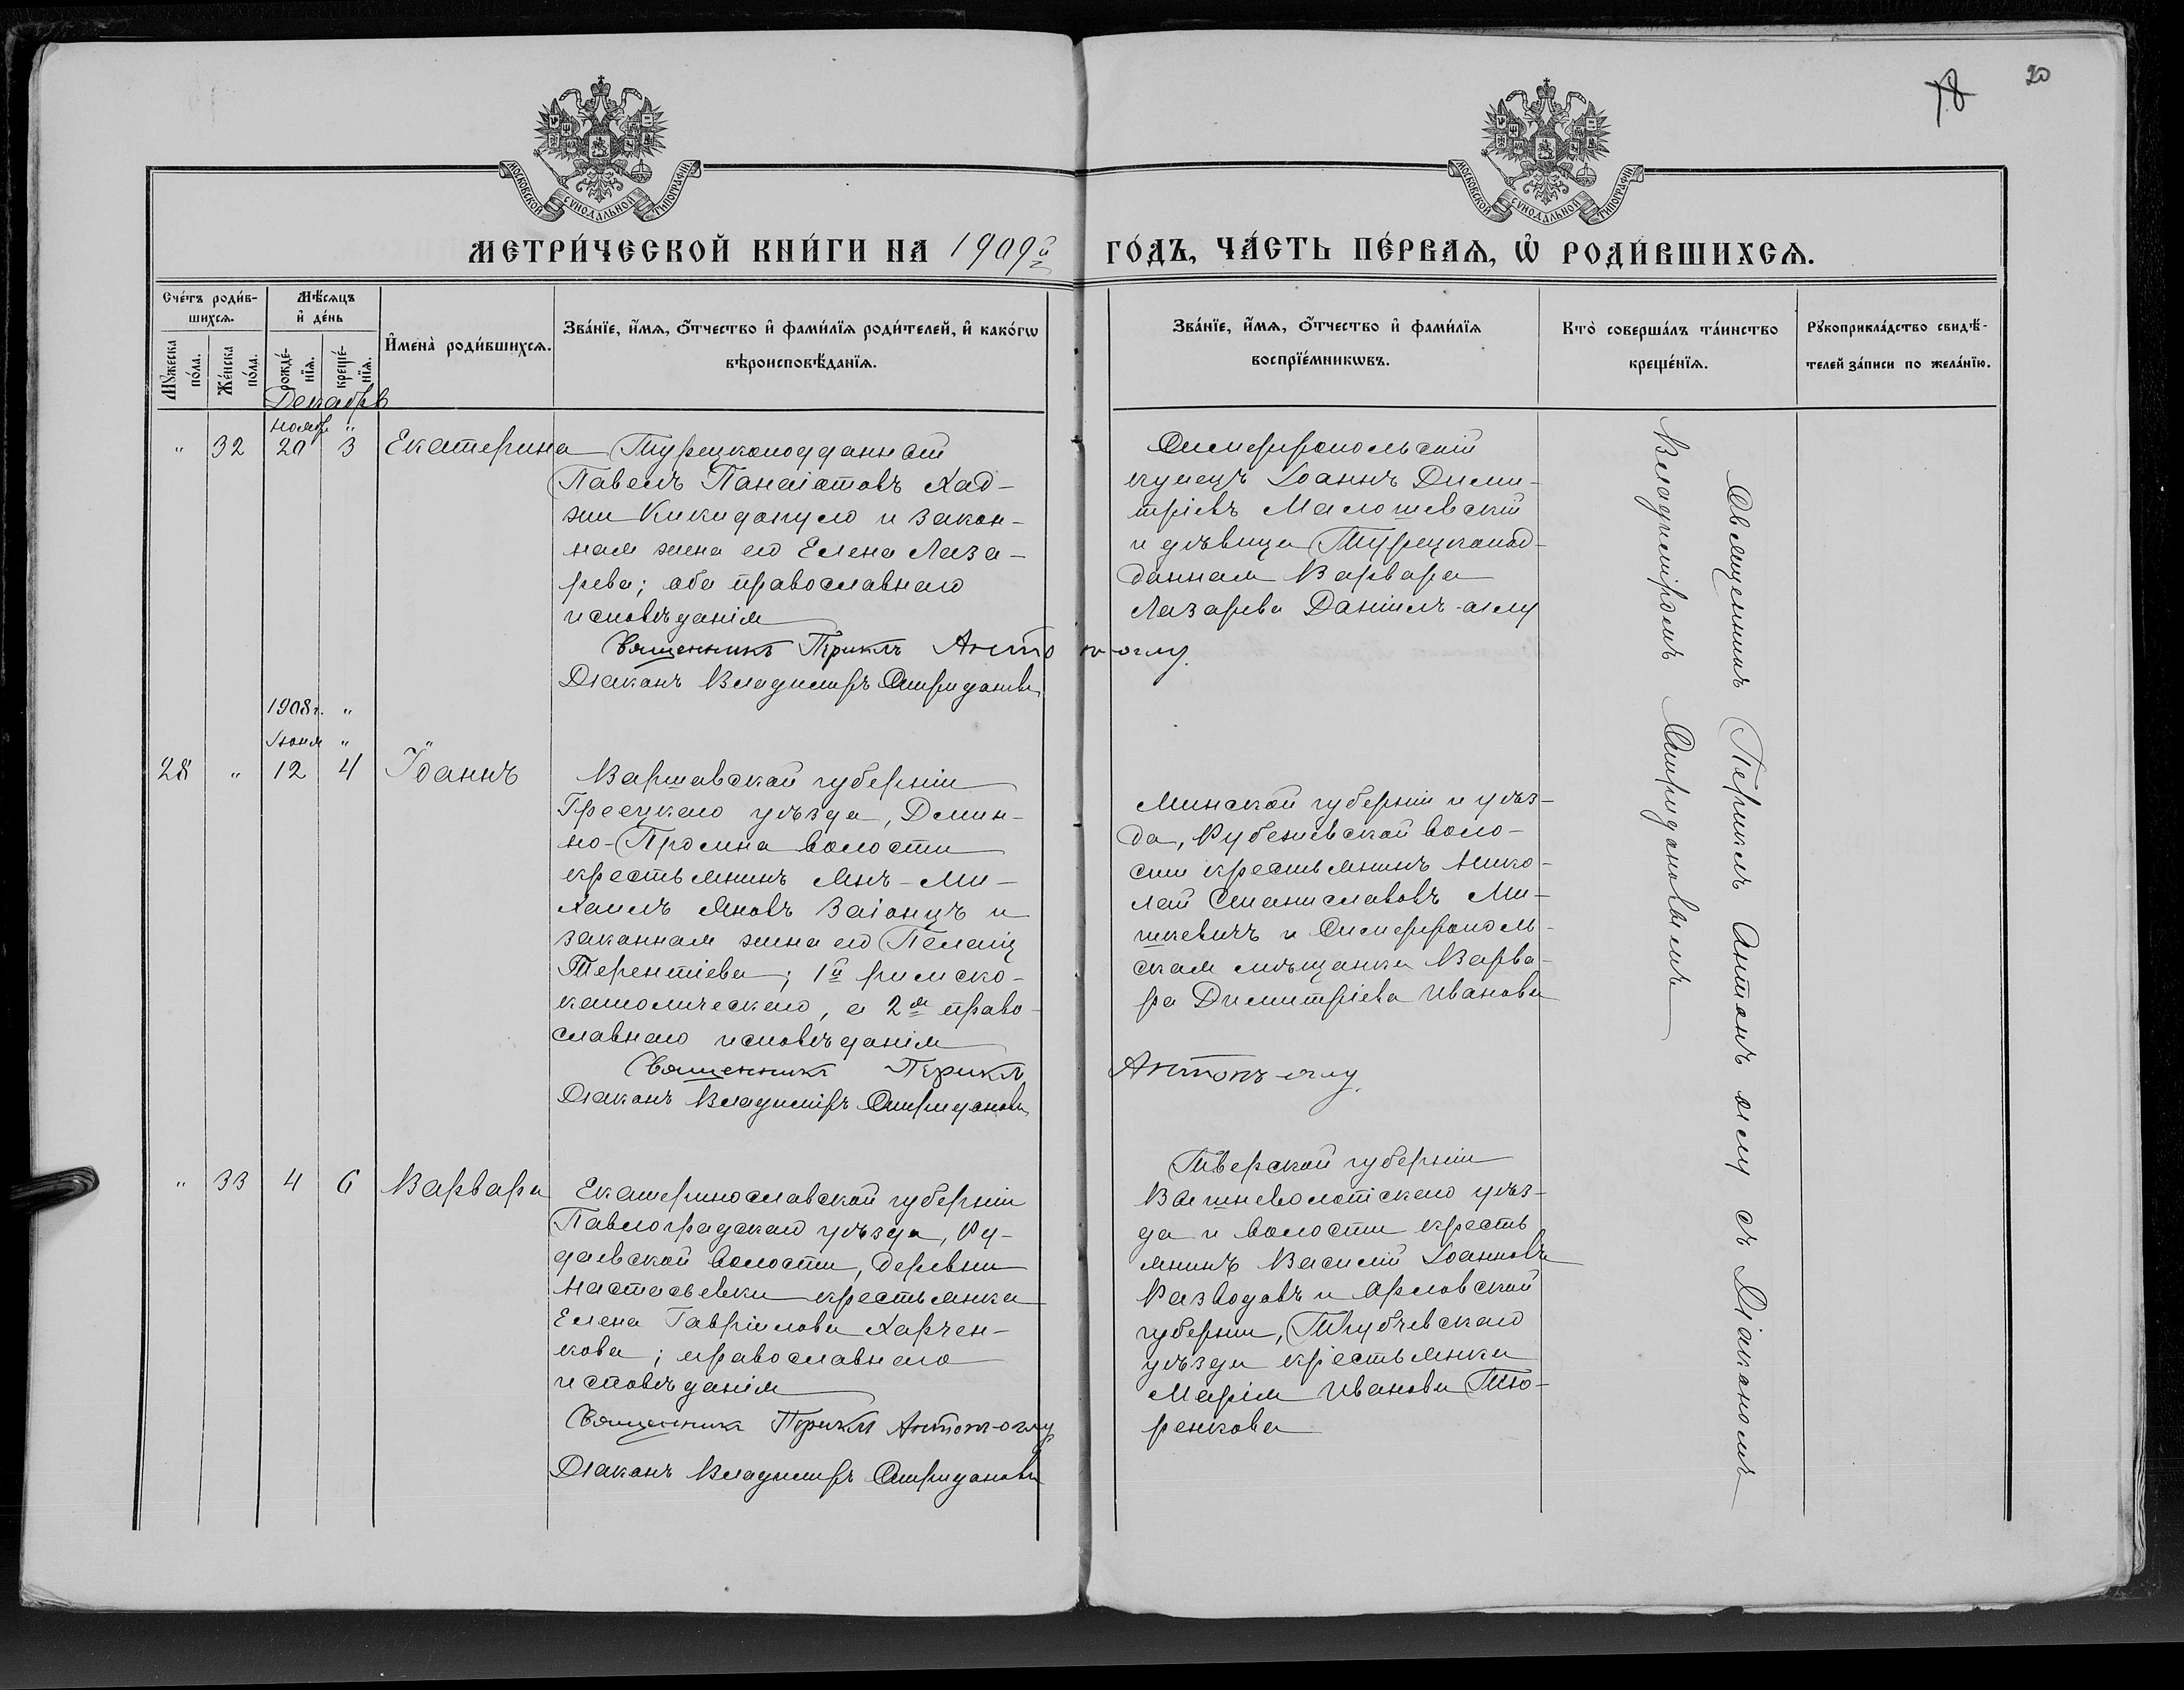 18
20
МОСКОВСКОЙ СѴНОДАЛЬНОЙ ТИПОГРАФІИ
МОСКОВСКОЙ СѴНОДАЛЬНОЙ ТИПОГРАФІИ
МЕТРИ́ЧЕСКОЙ КНИ́ГИ НА 1909й
ГО́ДЪ, ЧА́СТЬ ПЕ́РВАѦ, Ѡ҆ РОДИ́ВШИХСѦ.
Сче́тъ роди́в-
шихсѧ.
Мꙋ́жеска по́ла.
Же́нска по́ла.
Мѣ́сѧцъ
и҆ де́нь
рожде́-
нїѧ.
креще́-
нїѧ.
И҆мена̀ роди́вшихсѧ.
Зва́нїе, и҆́мѧ, ѻ҆́тчество и҆ фами́лїѧ роди́телей, и҆ како́гѡ
вѣроисповѣ́данїѧ.
Зва́нїе, и҆́мѧ, ѻ҆́тчество и҆ фами́лїѧ
воспрїе́мникѡвъ.
Кто̀ соверша́лъ та́инство
креще́нїѧ.
Рꙋкоприкла́дство свидѣ́-
телей за́писи по жела́нїю.
Декабрь
Ноябр "
" 32 20 3 Екатерина
Турецкоподданный
Павелъ Панаіотовъ Хад-
жи Кикидопуло и закон-
ная жена его Елена Лаза-
рева; оба православнаго
исповѣданія
Священникъ Периклъ Антонъ-оглу.
Діаконъ Владимиръ Спиридоновъ
Симферопольскій
купецъ Іоаннъ Дими-
тріевъ Малошевскій
и дѣвица Турецкопод-
данная Варвара
Лазарева Даніилъ-оглу
1908 г. "
Іюня "
28 " 12 4 Іоаннъ
Варшавской губерніи
Гроецкаго уѣзда,
волости
крестьянинъ Янъ-Ми-
хаилъ Яновъ Заіонцъ и
законная жена его Пелагія
Терентіева; 1й римско-
католическаго, а 2я право-
славнаго исповѣданія
Священникъ Периклъ
Антонъ-оглу.
Діаконъ Владиміръ Спиридоновъ
Минской губерніи и уѣз-
да, Рубежевской воло-
сти крестьянинъ Нико-
лай Станиславовъ Ми-
шкевичъ и Симферополь-
ская мѣщанка Варва-
ра Димитріева Иванова
" 33 4 6 Варвара
Екатеринославской губерніи
Павлоградскаго уѣзда,
волости, деревни
Настасьевки крестьянка
Елена Гавріилова Харчен-
кова; православнаго
исповѣданія
Священникъ Периклъ Антонъ-оглу
Діаконъ Владимиръ Спиридоновъ
Тверской губерніи
Вышневолотскаго уѣз-
да и волости кресть
янинъ Василій Іоанновъ
Разводовъ и Орловской
губерніи, Трубчевскаго
уѣзда крестьянка
Марія Иванова Тю-
ренкова
Священникъ Периклъ Антонъ оглу съ Діакономъ
Владиміромъ Спиридоновымъ